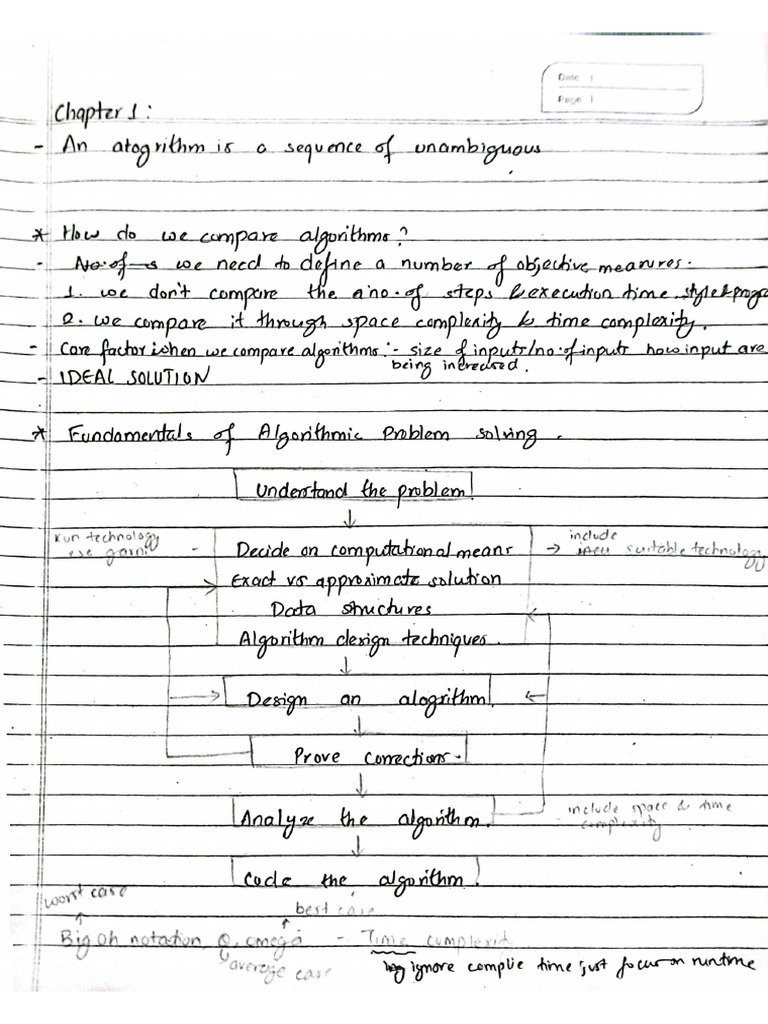 Date |
Page |
Chapter 1:
- An atogrithm is a sequence of unambiguous
* How do we compare algorithms?
- No. of s we need to define a number of objective measures.
1. we don't compare the no. of steps & execution time, style & progr
2. we compare it through space complexity & time complexity.
- Core factor is when we compare algorithms:- size of inputs/no. of inputs how input are
being increased.
- IDEAL SOLUTION
* Fundamentals of Algorithmic Problem solving.
Understand the problem
kun technology
use garni
- Decide on computational means
→ include
suitable technology
Exact vs approximate solution
Data structures
Algorithm design techniques.
Design an alogrithm.
Prove corrections.
Analyze the algorithm.
include space & time
complexity
Code the algorithm.
worst case
best case
Big Oh notation, Θ, omega - Time complexity
average case
ignore complie time, just focus on runtime